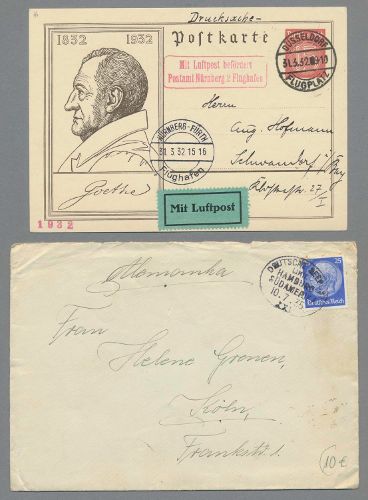 Drucksache
1832 1932
Postkarte
DÜSSELDORF
31.3.32
FLUGPLATZ
Mit Luftpost befördert
Postamt Nürnberg 2 Flughafen
Herrn
Aug. Hofmann
NÜRNBERG-FÜRTH
31 3 32 15 16
Flughafen
Schwandorf
27/I
Goethe
Mit Luftpost
1932
Alemanha
DEUTSCHE
HAMBURG
SÜDAMERIKA
10.7.
25
Deutsches Reich
Frau
Helene Gronen,
Köln,
Frankstr. 1.
10 €